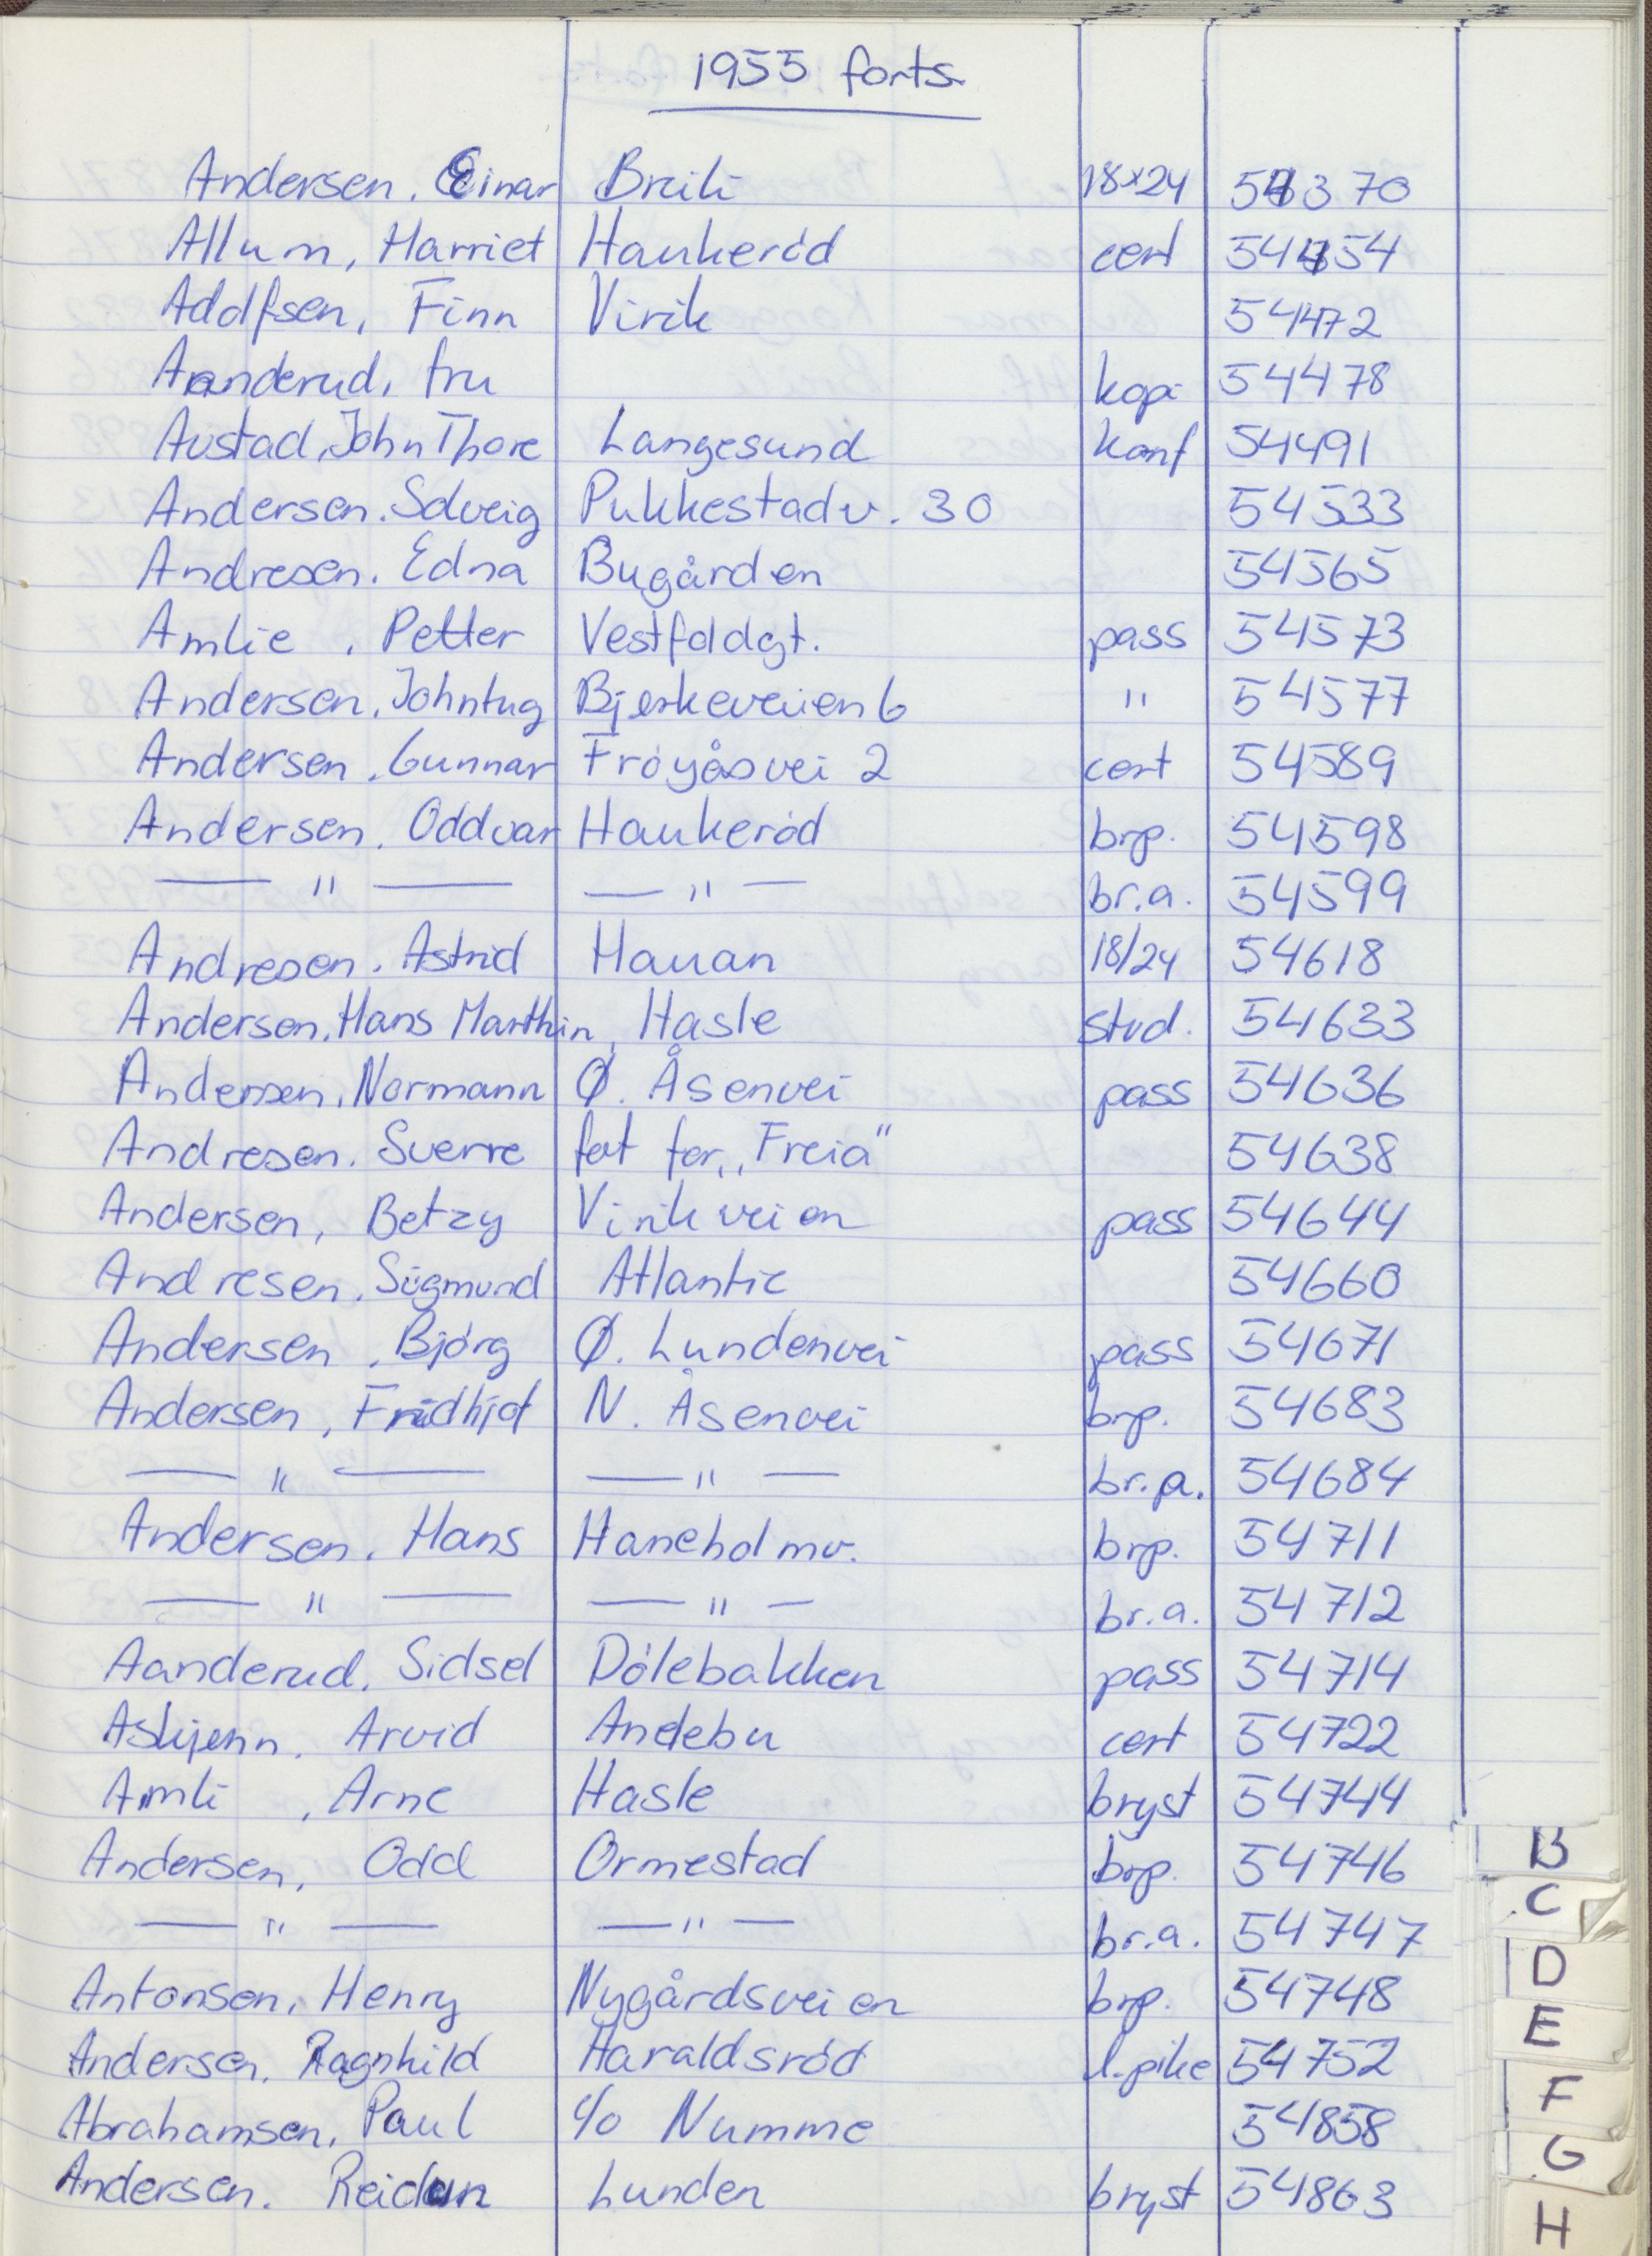 1955 forts.
Andersen, Einar Breili 18x24 54370
Allum, Harriet Haukeröd cert 54454
Adolfsen, Finn Virik 54472
Aanderud, fru kopi 54478
Austad, John Thore Langesund konf 54491
Andersen. Solveig Pukkestadv. 30 54533
Andresen. Edna Bugården 54565
Amlie, Petter Vestfoldgt. pass 54573
Andersen, Bjerkeveien 6 " 54577
Andersen, Gunnar Fröyåsvei 2 cert 54589
Andersen, Oddvar Haukeröd brp. 54598
— " — — " — br.a. 54599
Andresen, Astrid Hauan 18/24 54618
Andersen, Hans Marthin, Hasle stud. 54633
Andersen, Normann Ø. Åsenvei pass 54636
Andresen. Sverre fat for „Freia" 54638
Andersen, Betzy Virikveien pass 54644
Andresen, Sigmund Atlantic 54660
Andersen, Björg Ø. Lundenvei pass 54671
Andersen, Fridhjof N. Åsenvei brp. 54683
— " — — " — br.a. 54684
Andersen, Hans Haneholmv. brp. 54711
— " — — " — br.a. 54712
Aanderud, Sidsel Dölebakken pass 54714
Askjenn, Arvid Andebu cert 54722
Amli, Arne Hasle bryst 54744
Andersen, Odd Ormestad brp. 54746
— " — — " — br.a. 54747
Antonsen, Henry Nygårdsveien brp. 54748
Andersen, Ragnhild Haraldsröd l.pike 54752
Abrahamsen, Paul c/o Numme 54858
Andersen. Reidun Lunden bryst 54863
B
C
D
E
F
G
H